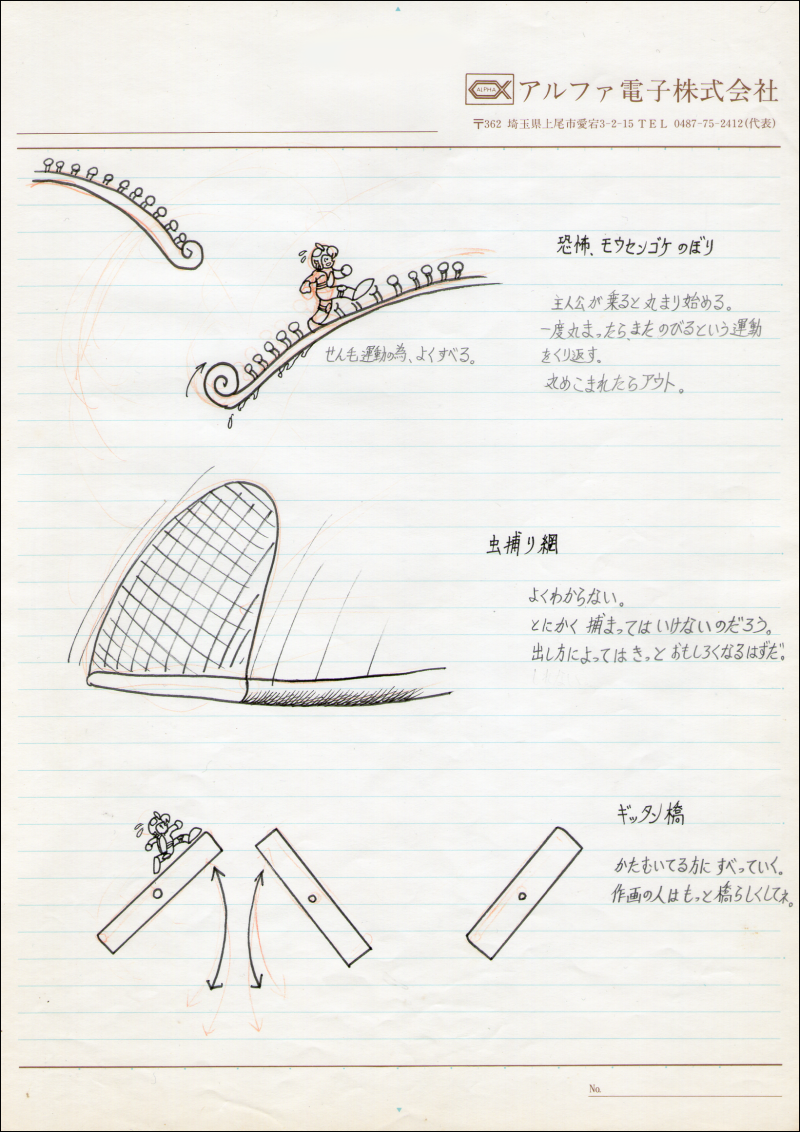 ALPHA アルファ電子株式会社
〒362 埼玉県上尾市愛宕3-2-15 TEL 0487-75-2412(代表)
恐怖、モウセンゴケのぼり
主人公が乗ると丸まり始める。
一度丸まったら、またのびるという運動
をくり返す。
丸めこまれたらアウト。
せんも運動の為、よくすべる。
虫捕り網
よくわからない。
とにかく捕まってはいけないのだろう。
出し方によってはきっとおもしろくなるはずだ。
ギッタン橋
かたむいてる方にすべっていく。
作画の人はもっと橋らしくしてネ。
No.